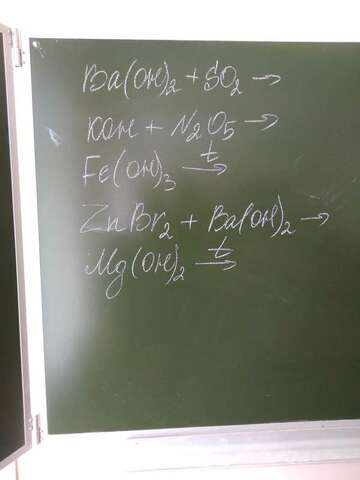 Ba(OH)₂ + SO₂ →
KOH + N₂O₅ →
Fe(OH)₃ t→
ZnBr₂ + Ba(OH)₂ →
Mg(OH)₂ t→